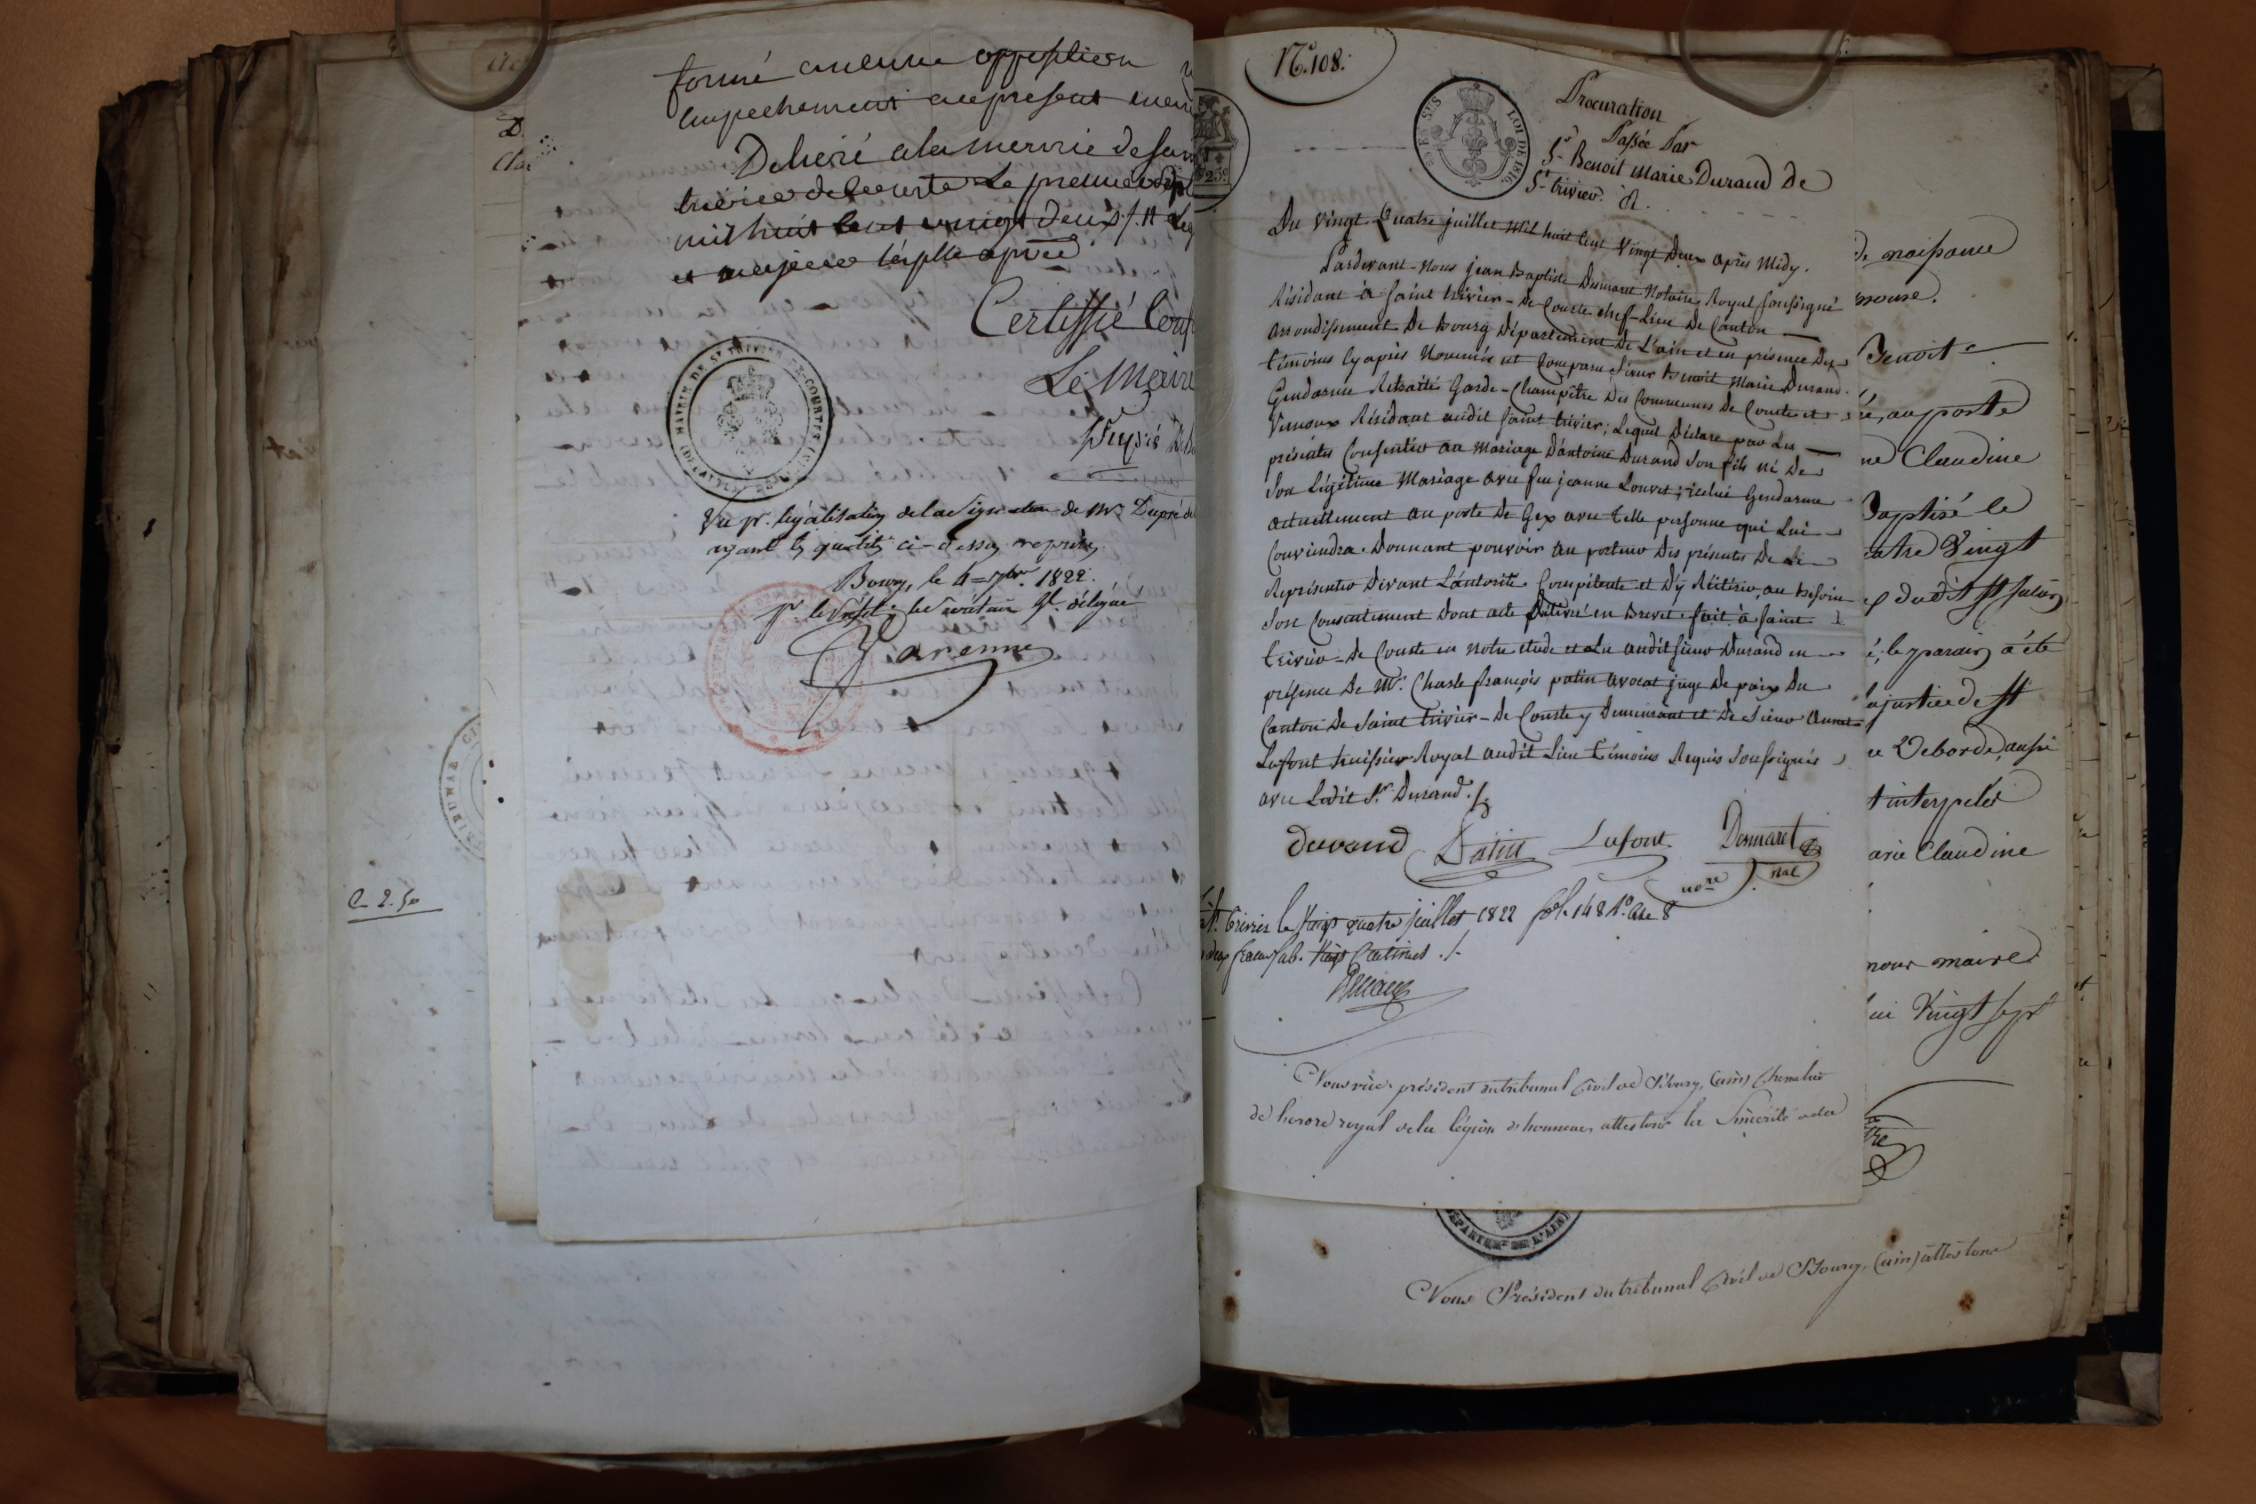 formé aucune opposition
empechement au present mari
Deliviré a la merrie de Saint
trivier de Courte Le premier sep
mil huit cent vingt deux
Certiffié Conf
Le Maire
Dupré
MAIRIE DE ST TRIVIER DE COURTES
Vu pr. légalisation de la Signature de Mr. Dupré de
ayant les qualités ci-dessus exprimées
Bourg, le 4 7bre 1822.
pr. le Préfet, le Secrétaire Gl. délégué
Varenne
C 2. 50
No. 108.
LOI DE 1816.
Procuration
Passée Par
Sr. Benoit Marie Durand De
St. trivier.
Du Vingt Quatre juillet Mil huit Cent Vingt Deux après Midy.
Pardevant-Nous jean Baptiste Desmaret Notaire Royal soussigné
Résidant à Saint trivier-de Courte chef-Lieu De Canton
arrondissement De Bourg Département De L'ain et en présence Des
témoins cy après Nommés est Comparu Sieur Benoit Marie Durand
Gendarme Retraité Garde-Champêtre Des Communes De Courte et
Vernoux Résidant audit Saint trivier; Lequel Déclare par Les
présentes Consentir au Mariage D'antoine Durand Son fils né De
Son Légitime Mariage avec feu jeanne Louvet; icelui Gendarme
actuellement au poste De Gex avec telle personne qui Lui
Conviendra. Donnant pouvoir au porteur Des présentes De Le
Représenter Devant L'autorité Compétente et D'y Réitérer, au besoin
Son Consentement Dont acte Délivré en Brevet. fait à Saint
trivier-De Courte en notre étude et Lu audit Sieur Durand en
présence De Mr. Charle françois patin avocat juge De paix Du
Canton De Saint trivier-De Courte y Demeurant et De Sieur
Lafont huissier Royal audit Lieu témoins Requis Soussignés
avec Ledit Sr. Durand.
durand Patin Lafont Desmaret
nore Ral
St. trivier le Vingt quatre juillet 1822 fol. 148 Ro. Cse 8
deux francs Vingt Centimes
Nous vice-président du tribunal Civil de Bourg, (ain) Chevalier
de l'ordre royal de la légion d'honneur attestons la Sincérité de la
DÉPARTEMT. DE L'AIN
Nous Président du tribunal Civil de Bourg, (ain) attestons
de naissance
Benoit
é, au poste
ne Claudine
Baptisé le
quatre Vingt
dudit St julien
é, le parain a été
la justice de St
Debordes, aussi
interpelés
arie Claudine
nous maire
ui Vingt sept